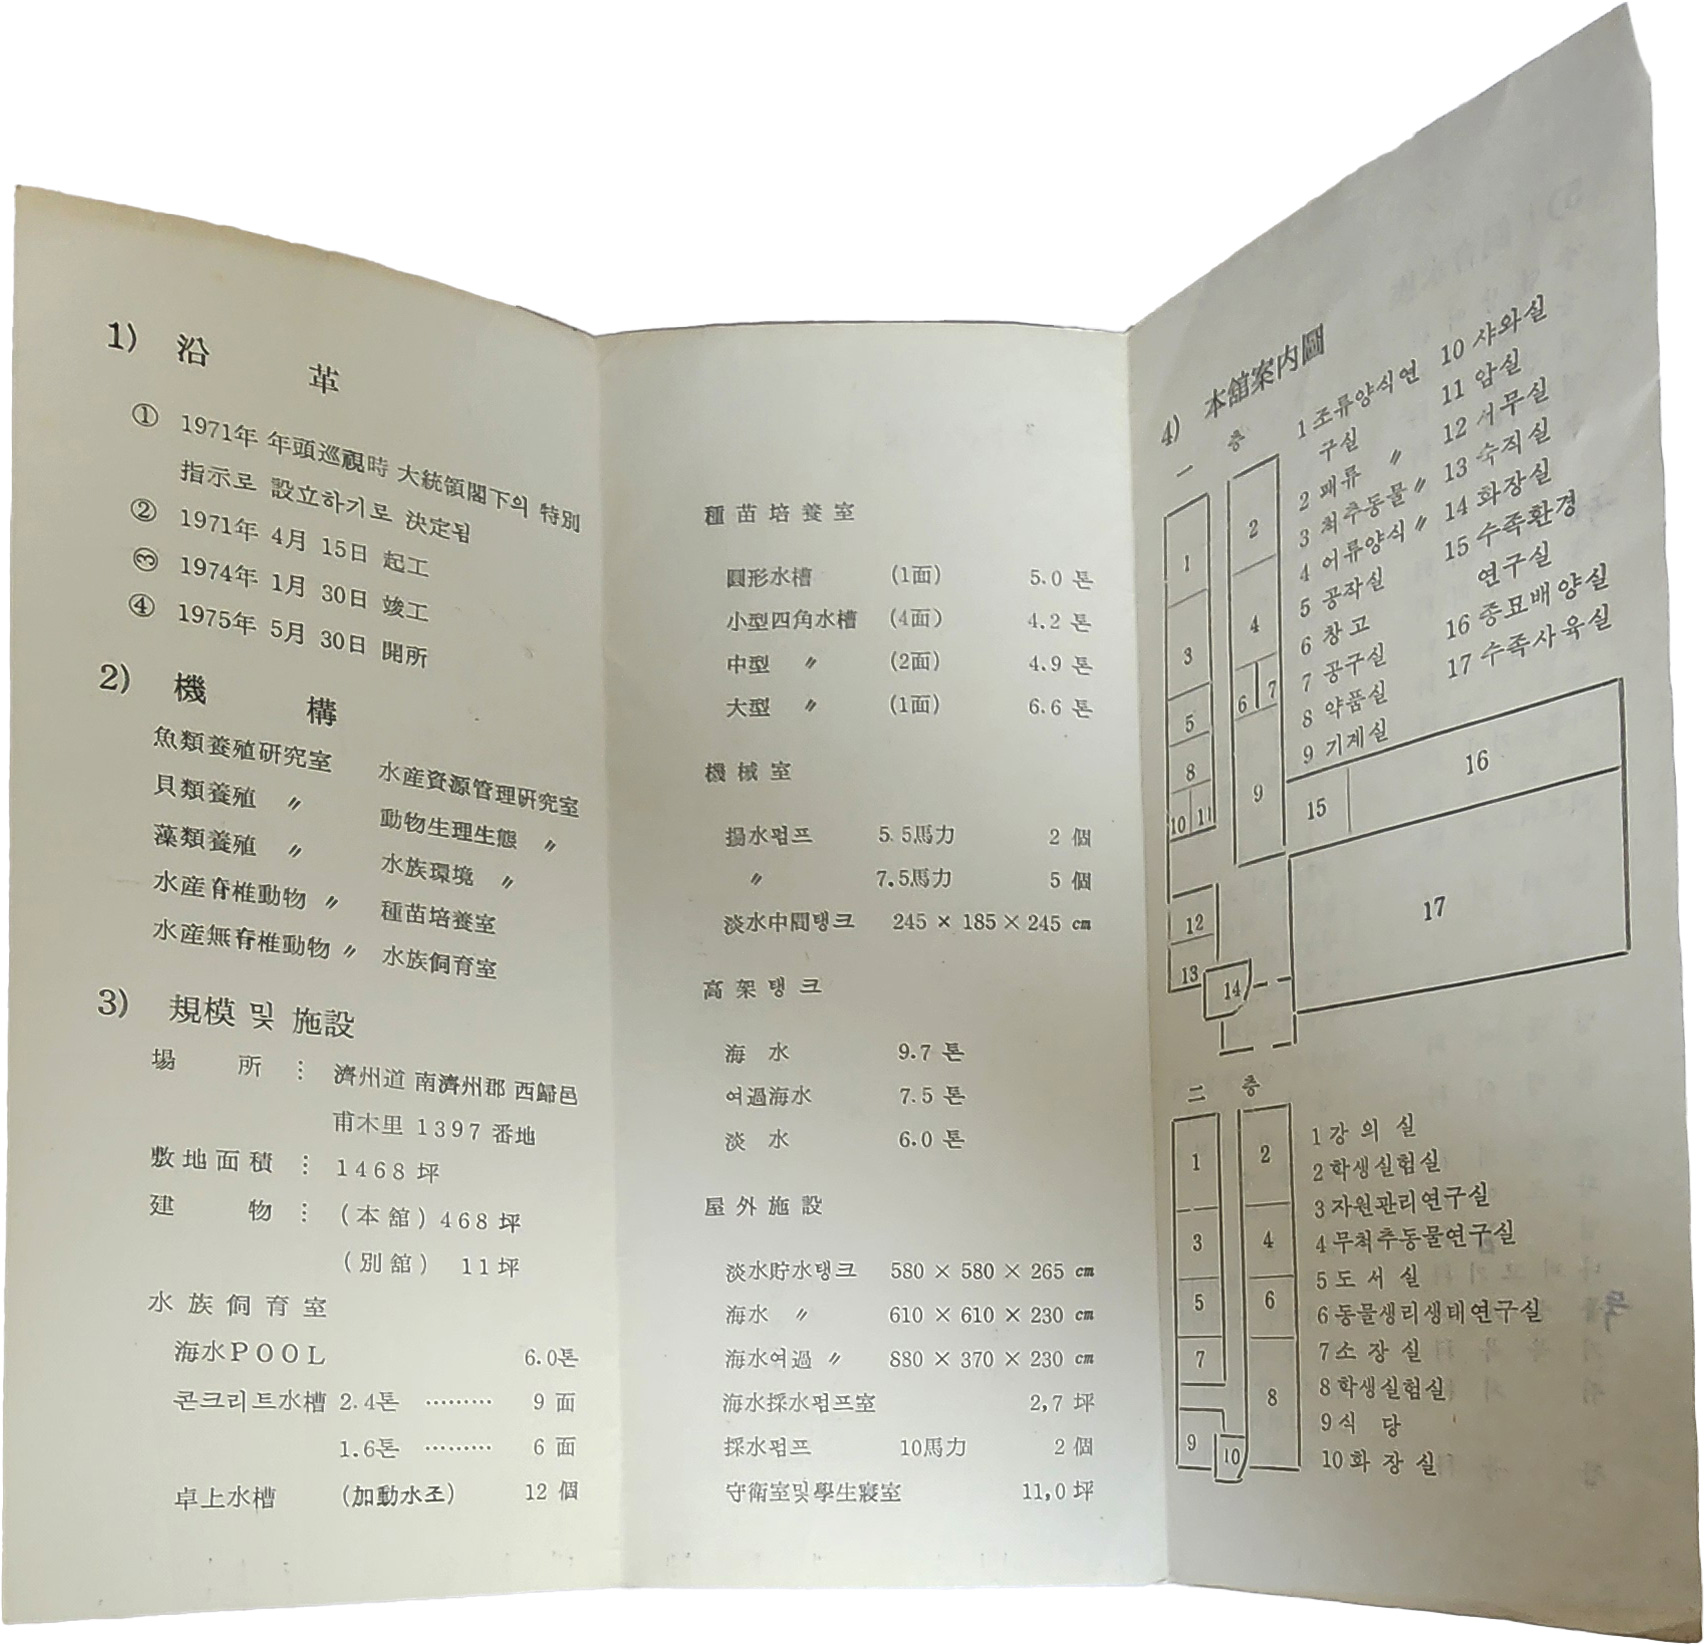 1) 沿 革
① 1971年 年頭巡視時 大統領閣下의 特別
指示로 設立하기로 決定됨
② 1971年 4月 15日 起工
③ 1974年 1月 30日 竣工
④ 1975年 5月 30日 開所
2) 機 構
魚類養殖研究室 水産資源管理研究室
貝類養殖 〃 動物生理生態 〃
藻類養殖 〃 水族環境 〃
水産脊椎動物 〃 種苗培養室
水産無脊椎動物 〃 水族飼育室
3) 規模 및 施設
場 所 : 濟州道 南濟州郡 西歸邑
甫木里 1397 番地
敷地面積 : 1468坪
建 物 : (本舘) 468坪
(別舘) 11坪
水族飼育室
海水POOL 6.0톤
콘크리트水槽 2.4톤 ……… 9 面
1.6톤 ……… 6 面
卓上水槽 (加動水조) 12 個
種苗培養室
圓形水槽 (1面) 5.0 톤
小型四角水槽 (4面) 4.2 톤
中型 〃 (2面) 4.9 톤
大型 〃 (1面) 6.6 톤
機械室
揚水펌프 5.5馬力 2 個
〃 7.5馬力 5 個
淡水中間탱크 245 × 185 × 245 cm
高架탱크
海 水 9.7 톤
여過海水 7.5 톤
淡 水 6.0 톤
屋外施設
淡水貯水탱크 580 × 580 × 265 cm
海水 〃 610 × 610 × 230 cm
海水여過 〃 880 × 370 × 230 cm
海水採水펌프室 2,7 坪
採水펌프 10馬力 2 個
守衛室및學生寢室 11,0 坪
4) 本舘案內圖
一 층
1 조류양식연
구실
2 패류 〃
3 척추동물 〃
4 어류양식 〃
5 공작실
6 창고
7 공구실
8 약품실
9 기계실
10 샤와실
11 암실
12 서무실
13 숙직실
14 화장실
15 수족환경
연구실
16 종묘배양실
17 수족사육실
1
2
3
4
5
6
7
8
9
10
11
12
13
14
15
16
17
二 층
1 강 의 실
2 학생실험실
3 자원관리연구실
4 무척추동물연구실
5 도 서 실
6 동물생리생태연구실
7 소 장 실
8 학생실험실
9 식 당
10 화 장 실
1
2
3
4
5
6
7
8
9
10